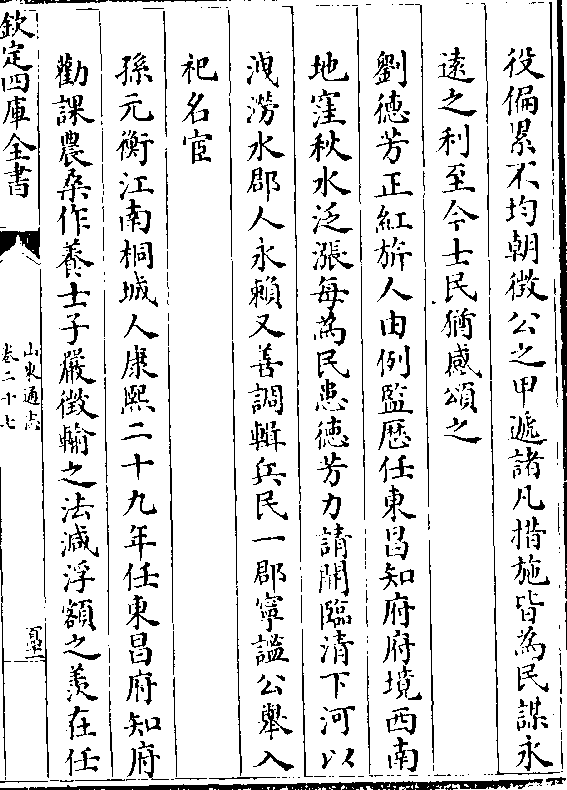 役偏累不均朝徵公之甲遞諸凡措施皆為民謀永
遠之利至今士民猶感頌之
劉德芳正紅旂人由例監歴任東昌知府府境西南
地窪秋水泛漲每為民患德芳力請開臨清下河以
洩澇水郡人永賴又善調輯兵民一郡寧謐公舉入
祀名宦
孫元衡江南桐城人康熙二十九年任東昌府知府
勸課農桑作養士子嚴徵輸之法減浮額之羨在任
欽定四庫全書
山東通志
卷二十七